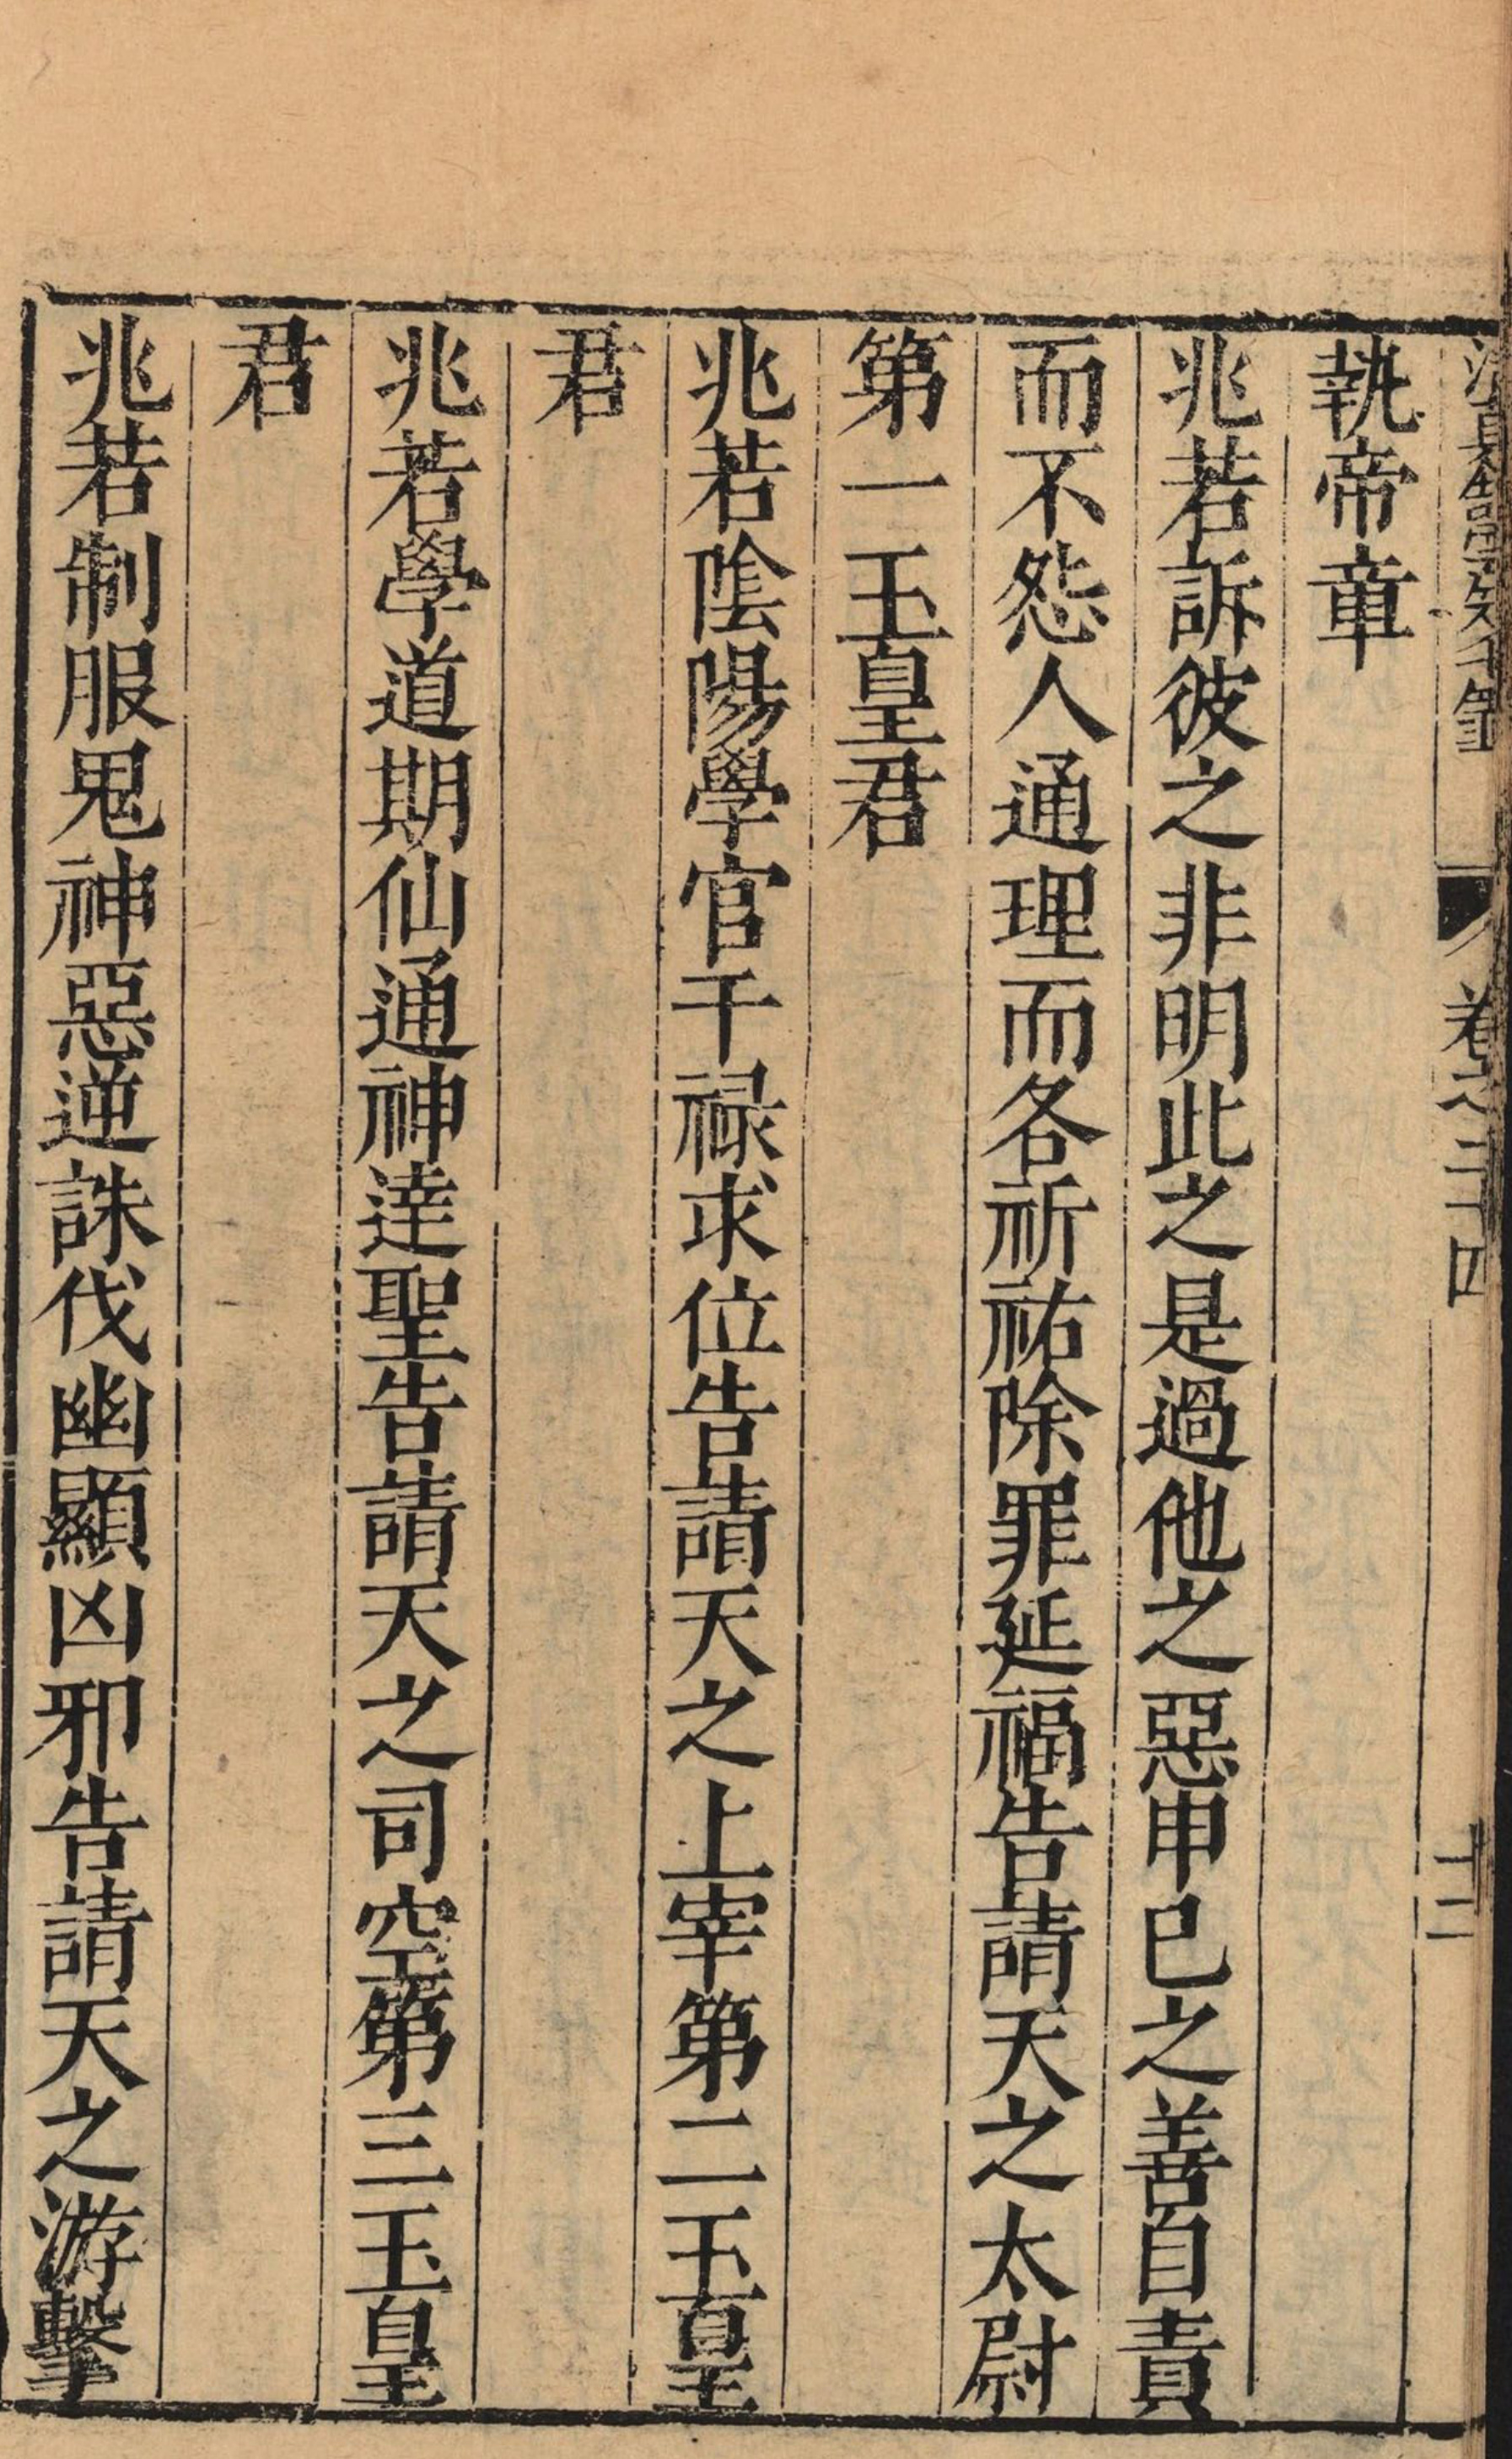 卷之二十四
十二
執帝章
兆若訴彼之非明此之是過他之惡申巳之善自責
而不怨人通理而各祈祐除罪延福告請天之太尉
第一玉皇君
兆若陰陽學官干禄求位告請天之上宰第二玉皇
君
兆若學道期仙通神逹聖告請天之司空第三玉皇
君
兆若制服鬼神惡逆誅伐幽顯凶邪告請天之游擊